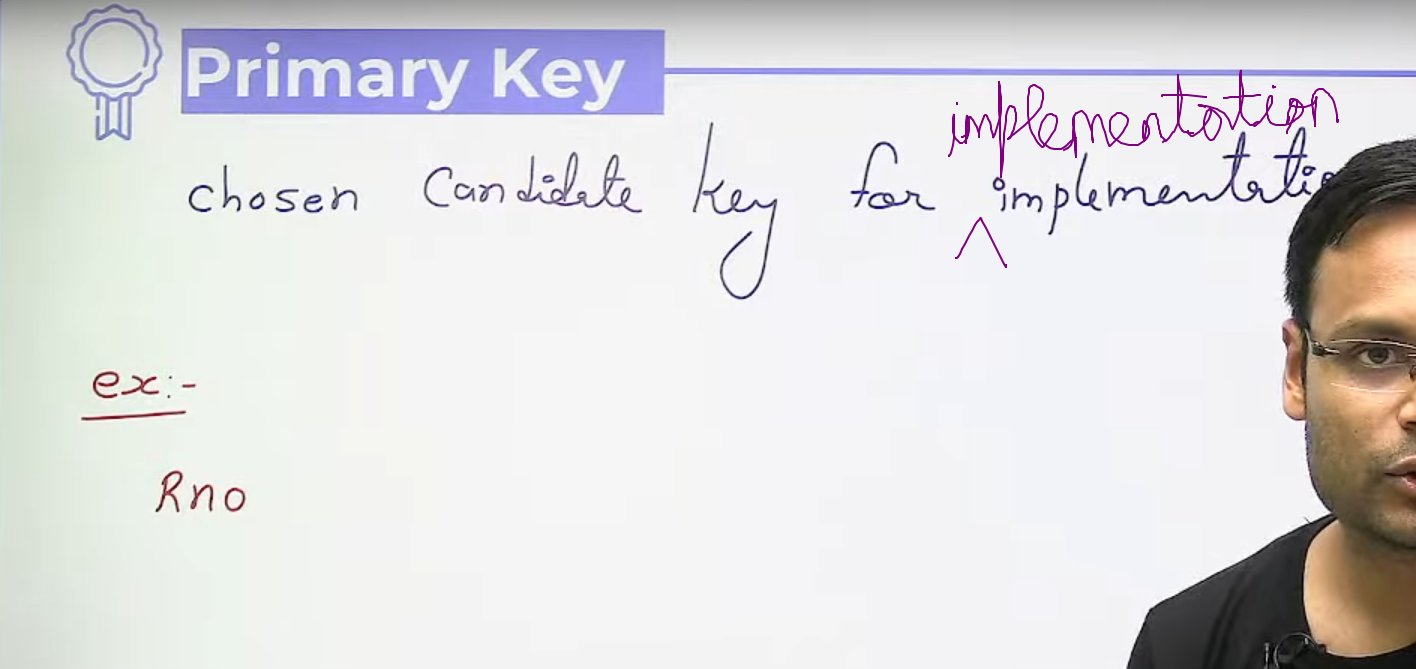 Primary Key
implementation
chosen Candidate key for implementatio
^
ex:-
Rno